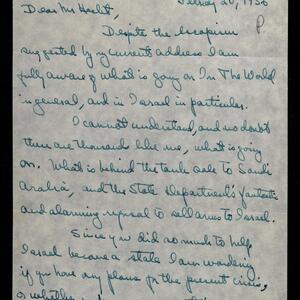 Dear Mr Hecht,
February 20, 1956
P
Despite the escapism
suggested by my current address I am
fully aware of what is going on In The World
in general, and in Israel in particular.
I cannot understand, and no doubt
there are thousands like me, what is going
on. What is behind the tank sale to Saudi
Arabia, and the State Department's fantastic
and alarming refusal to sell arms to Israel.
Since you did so much to help
Israel become a state I am wondering
if you have any plans for the present crisis,
or whether